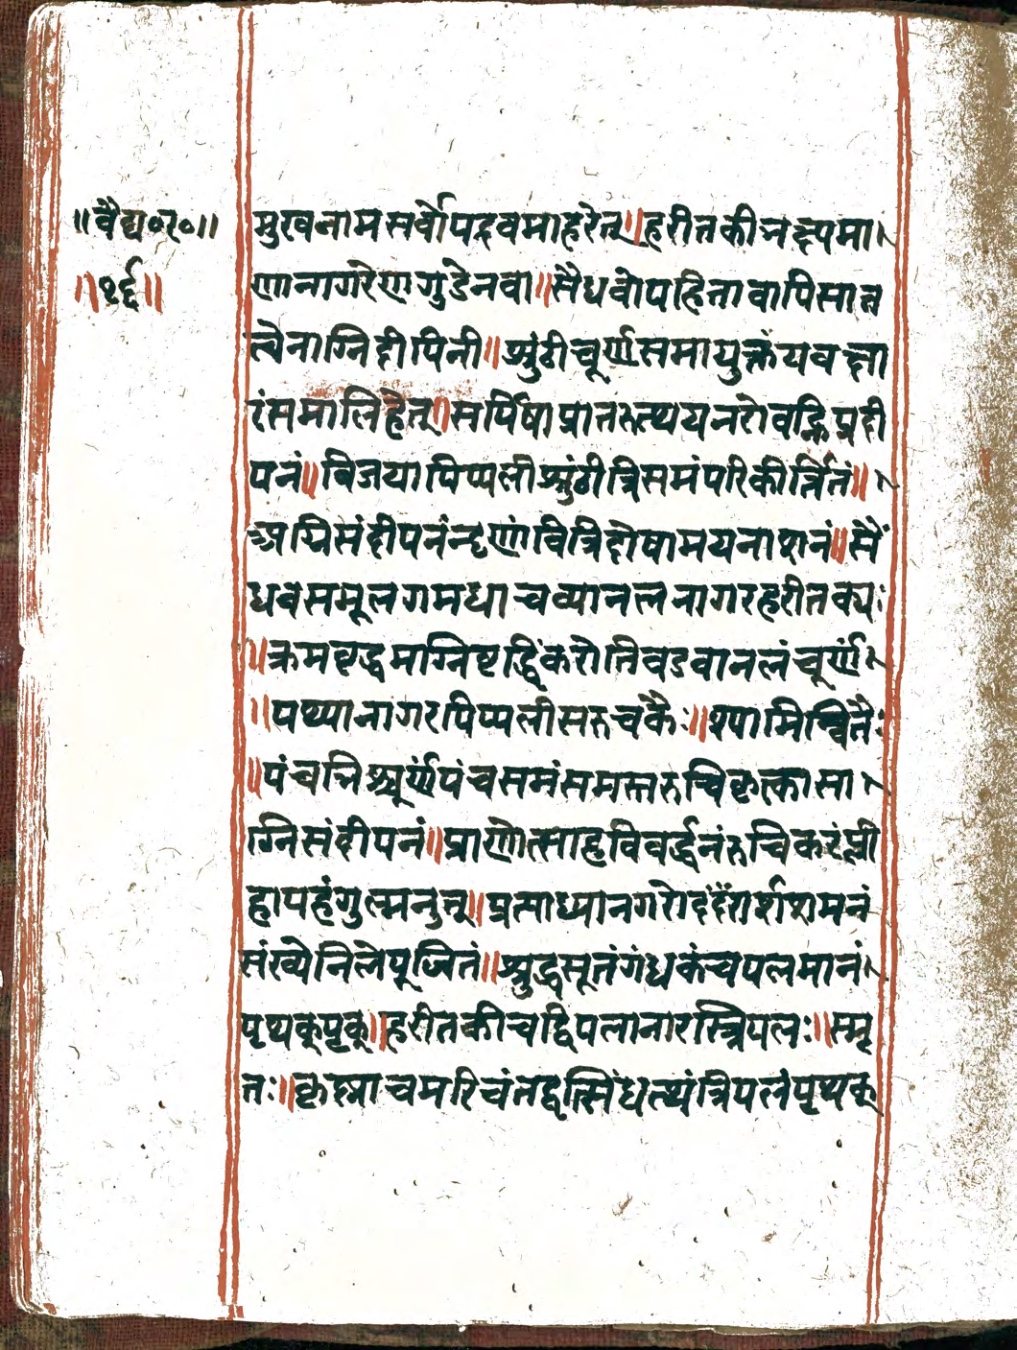 ॥वैद्य०र०॥
॥१६॥
मुखनामसर्वोपद्रवमाहरेत्॥हरीतकीभक्ष्यमा
णानागरेणगुडेनवा॥सैधवोपहितावापिसात
त्येनाग्निदीपिनी॥शुंठीचूर्णसमायुक्तंयवक्षा
रंसमालिहेत्॥सर्पिषाप्रातरुत्थाय नरोवह्निप्रदी
पनं॥विजयापिप्पलीशुंठीत्रिसमंपरिकीर्त्तितं॥
अग्निसंदीपनंनृणांवित्रिदोषामयनाशनं॥सैं
धवसमूलगमधाचव्यानलनागरहरीतक्यः
॥क्रमवृद्धमग्निवृद्धिंकरोतिवडवानलंचूर्णं
॥पथ्यानागरपिप्पलीसरुचकैः॥श्यामान्वितैः
॥पंचभिश्चूर्णंपंचसमंसमस्तरुचिकृत्कासा
ग्निसंदीपनं॥प्राणोत्साहविवर्द्धनंरुचिकरंप्ली
हापहंगुल्मनुत्॥प्रत्याध्यानगरोदरार्शशमनं
संख्येनिलेपूजितं॥शुद्धसूतंगंधकंचपलमानं
पृथक्पृक्॥हरीतकीचद्विपलानारस्त्रिपलः॥स्मृ
तः॥कृष्णाचमरिचंतद्वत्सिंधूत्थंत्रिपलंपृथक्